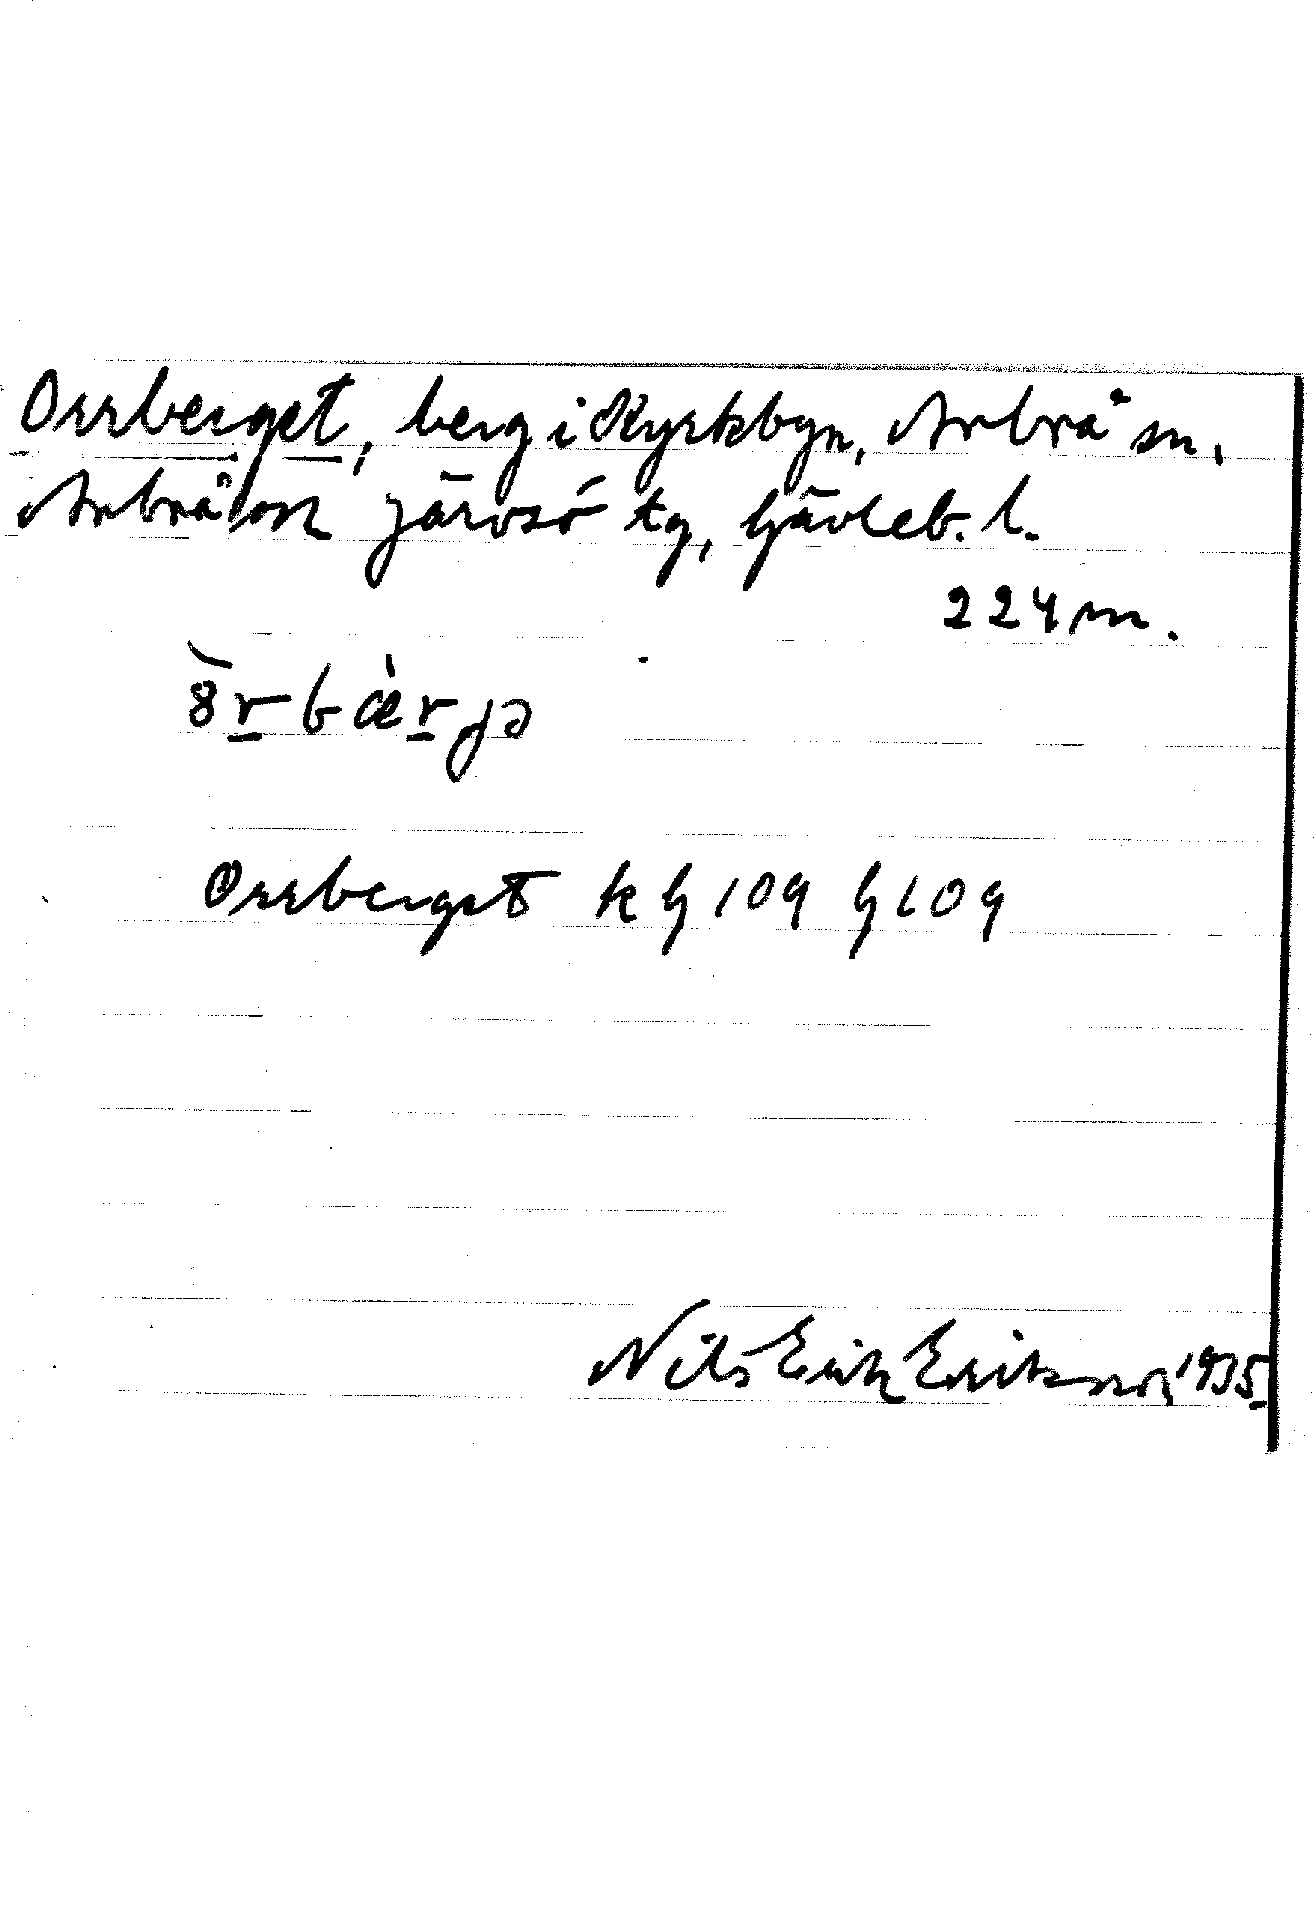 Orrberget, berg i Kyrkbyn, Arbrå sn,
Arbrå och Järvsö tg, Gävleb. l.
224 m.
Orrberget k G 109 G 109
Nils Erik Eriksson 1935.